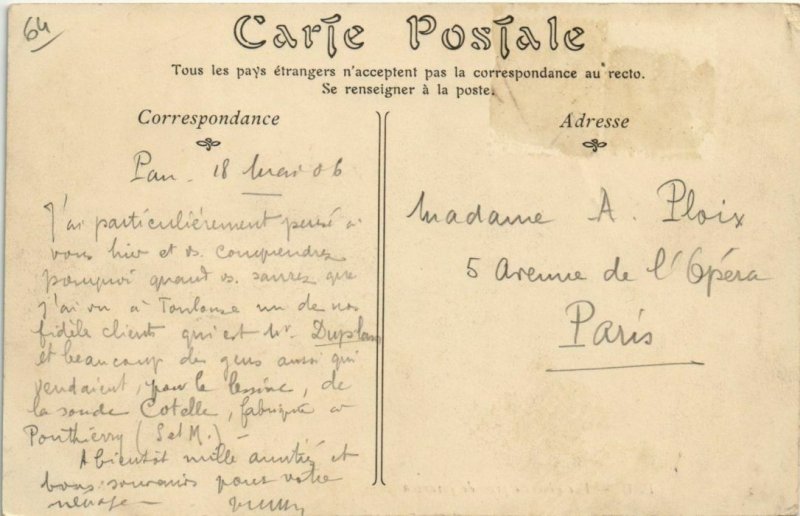 64
Carte Postale
Tous les pays étrangers n'acceptent pas la correspondance au recto.
Se renseigner à la poste.
Correspondance
Pau 18 Mai 06
J'ai particulièrement pensé à
vous hier et vs. comprendrez
pourquoi quand vs. saurez que
j'ai vu à Toulouse un de nos
fidèle clients qui est Mr.
et beaucoup des gens aussi qui
vendaient, pour la lessive, de
la soude Cotelle, fabriquée à
Ponthierry (S et M.)
A bientôt mille amitiés et
bons souvenirs pour votre
ménage
Adresse
Madame A. Ploix
5 Avenue de l'Opéra
Paris